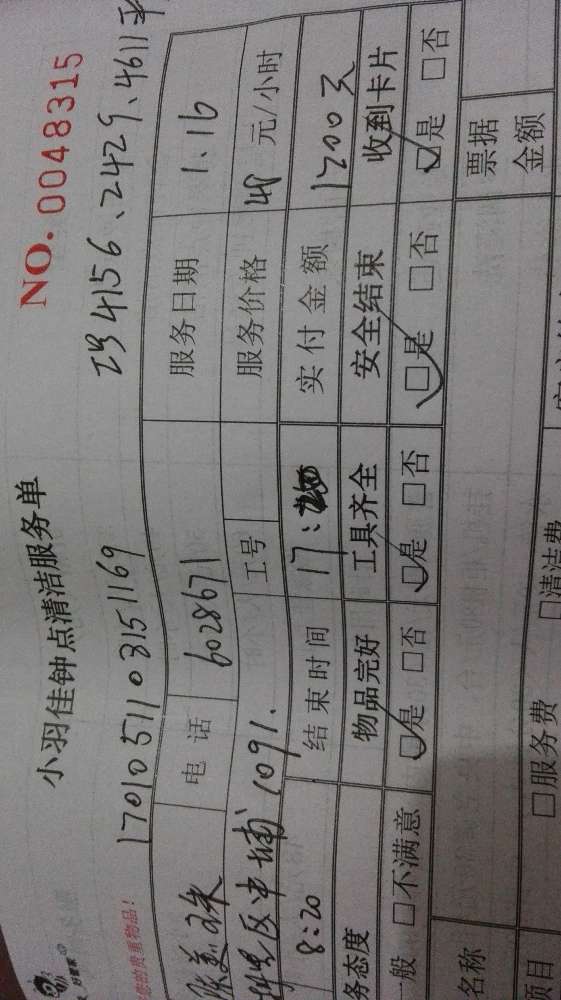 NO. 0048315
小羽佳钟点清洁服务单
1701051103151169
工号4156、2429、4611
您的贵重物品!
电话 6028671 服务日期 1.16
1091. 工号 服务价格 48 元/小时
8:20 结束时间 17: 实付金额 1200元
务态度 物品完好 工具齐全 安全结束 收到卡片
般 □不满意 □是 □否 □是 □否 □是 □否 □是 □否
名称 票据金额
项目 □服务费 □清洁费